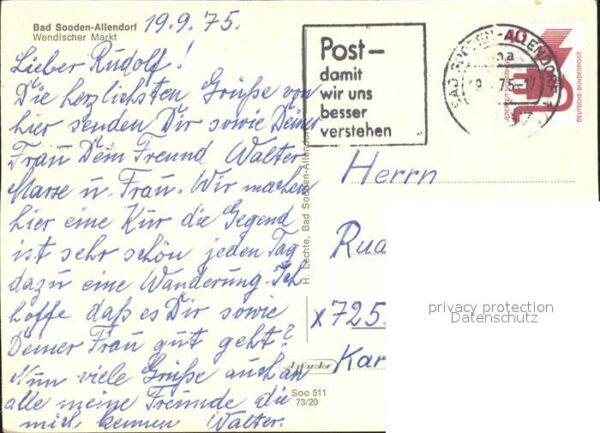 Bad Sooden-Allendorf
Wendischer Markt
19.9.75.
Lieber Rudolf!
Die herzlichsten Grüße von
hier senden Dir sowie Deiner
Frau Dein Freund Walter
u. Frau. Wir machen
hier eine Kur die Gegend
ist sehr schön jeden Tag
dazu eine Wanderung. Ich
hoffe daß es Dir sowie
Deiner Frau gut geht?
Nun viele Grüße auch an
alle meine Freunde die
mich kennen Walter.
H. Lechte, Bad Sooden-Allendorf
Soo 511
73/20
Post-
damit
wir uns
besser
verstehen
BAD SOODEN-ALLENDORF
DEUTSCHE BUNDESPOST
Herrn
x725
Kar
privacy protection
Datenschutz